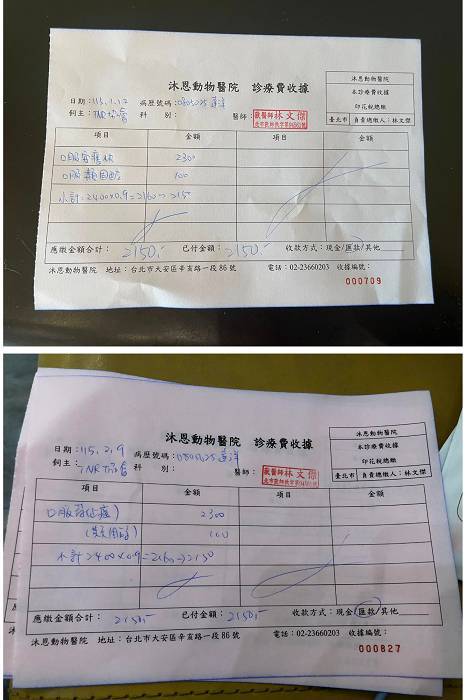 沐恩動物醫院 診療費收據
沐恩動物醫院
本診療費收據
印花稅總繳
臺北市 負責總繳人：林文傑
日期：115.1.12 病歷號碼：
飼主： 科 別： 醫師：獸醫師林文傑
項目 金額 項目 金額
口服 2300
口服類固醇 100
小計：2400x0.9=2160→215
應繳金額合計：2150.- 已付金額：2150.- 收款方式：現金/匯款/其他
沐恩動物醫院 地址：台北市大安區辛亥路一段86號 電話：02-23660203 收據編號：
000709
沐恩動物醫院 診療費收據
沐恩動物醫院
本診療費收據
印花稅總繳
臺北市 負責總繳人：林文傑
日期：115.2.9 病歷號碼：
飼主：TNR協會 科 別： 醫師：獸醫師林文傑
項目 金額 項目 金額
口服 2300
100
小計 2400x0.9=2160→2150
應繳金額合計：2150.- 已付金額：2150.- 收款方式：現金/匯款/其他
沐恩動物醫院 地址：台北市大安區辛亥路一段86號 電話：02-23660203 收據編號：
000827